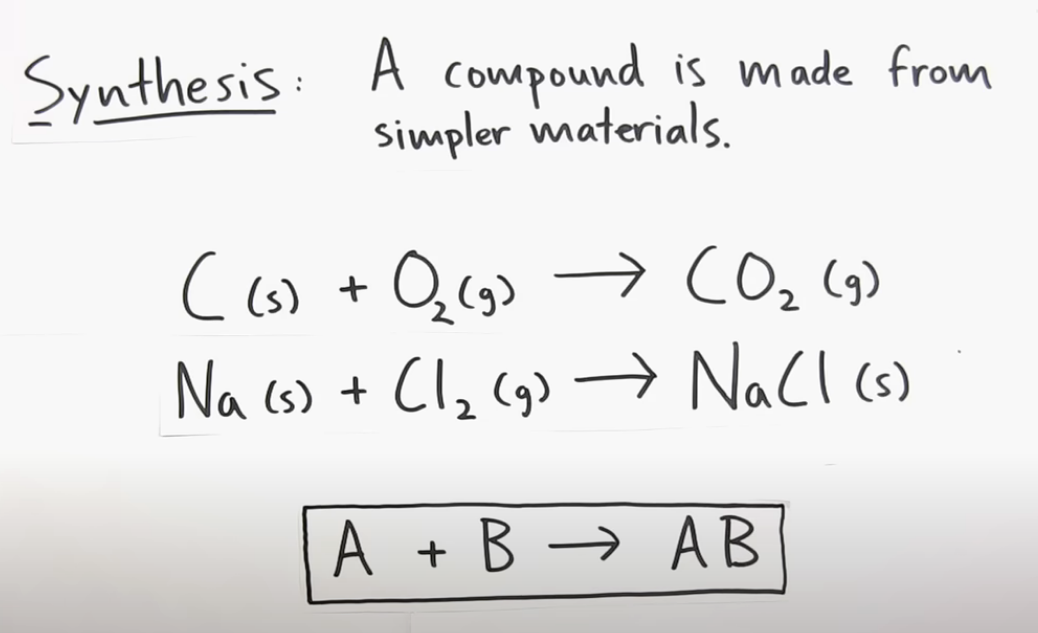 Synthesis: A compound is made from
simpler materials.
C (s) + O₂ (g) → CO₂ (g)
Na (s) + Cl₂ (g) → NaCl (s)
A + B → AB